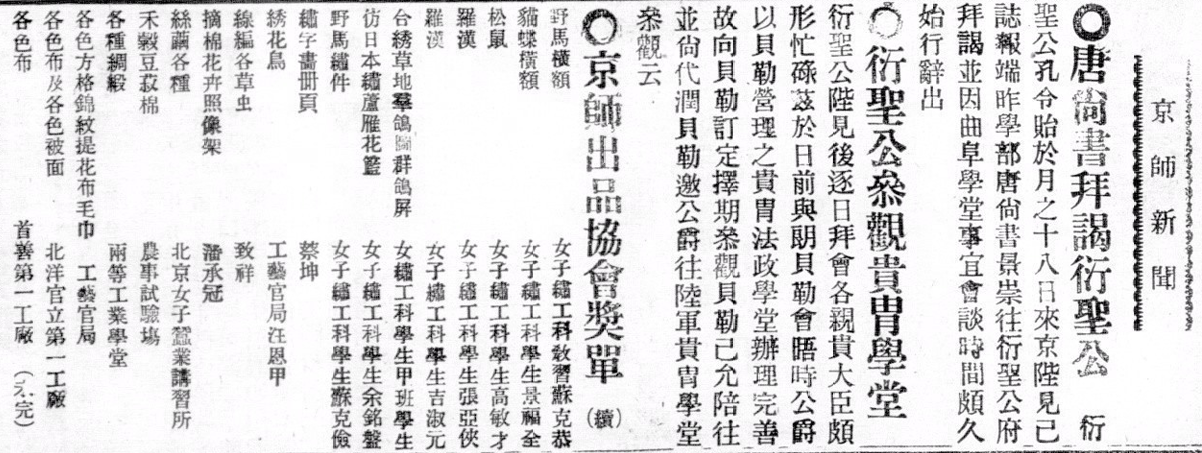 京師新聞
◎唐尙書拜謁衍聖公　衍
聖公孔令貽於月之十八日來京陛見已
誌報端昨學部唐尙書景崇往衍聖公府
拜謁並因曲阜學堂事宜會談時間頗久
始行辭出
◎衍聖公叅觀貴胄學堂
衍聖公陛見後逐日拜會各親貴大臣頗
形忙碌茲於日前與朗貝勒會晤時公爵
以貝勒營理之貴胄法政學堂辦理完善
故向貝勒訂定擇期叅觀貝勒已允陪往
並尙代潤貝勒邀公爵往陸軍貴胄學堂
叅觀云
◎京師出品協會獎單（續）
野馬橫額　女子繡工科敎習蘇克恭
貓蝶橫額　女子繡工科學生景福全
松鼠　女子繡工科學生高敏才
羅漢　女子繡工科學生張亞俠
羅漢　女子繡工科學生吉淑元
台綉草地羣鴿圖群鴿屏　女繡工科學生甲班學生
仿日本繡蘆雁花籃　女子繡工科學生余銘盤
野馬繡件　女子繡工科學生蘇克儉
繡字畫冊頁　蔡坤
綉花鳥　工藝官局汪恩甲
線編各草虫　致祥
摘棉花卉照像架　潘承冠
絲繭各種　北京女子蠶業講習所
禾穀豆菽棉　農事試驗塲
各種綢緞　兩等工業學堂
各色方格錦紋提花布毛巾　工藝官局
各色布及各色被面　北洋官立第一工廠
各色布　首善第一工廠　（未完）